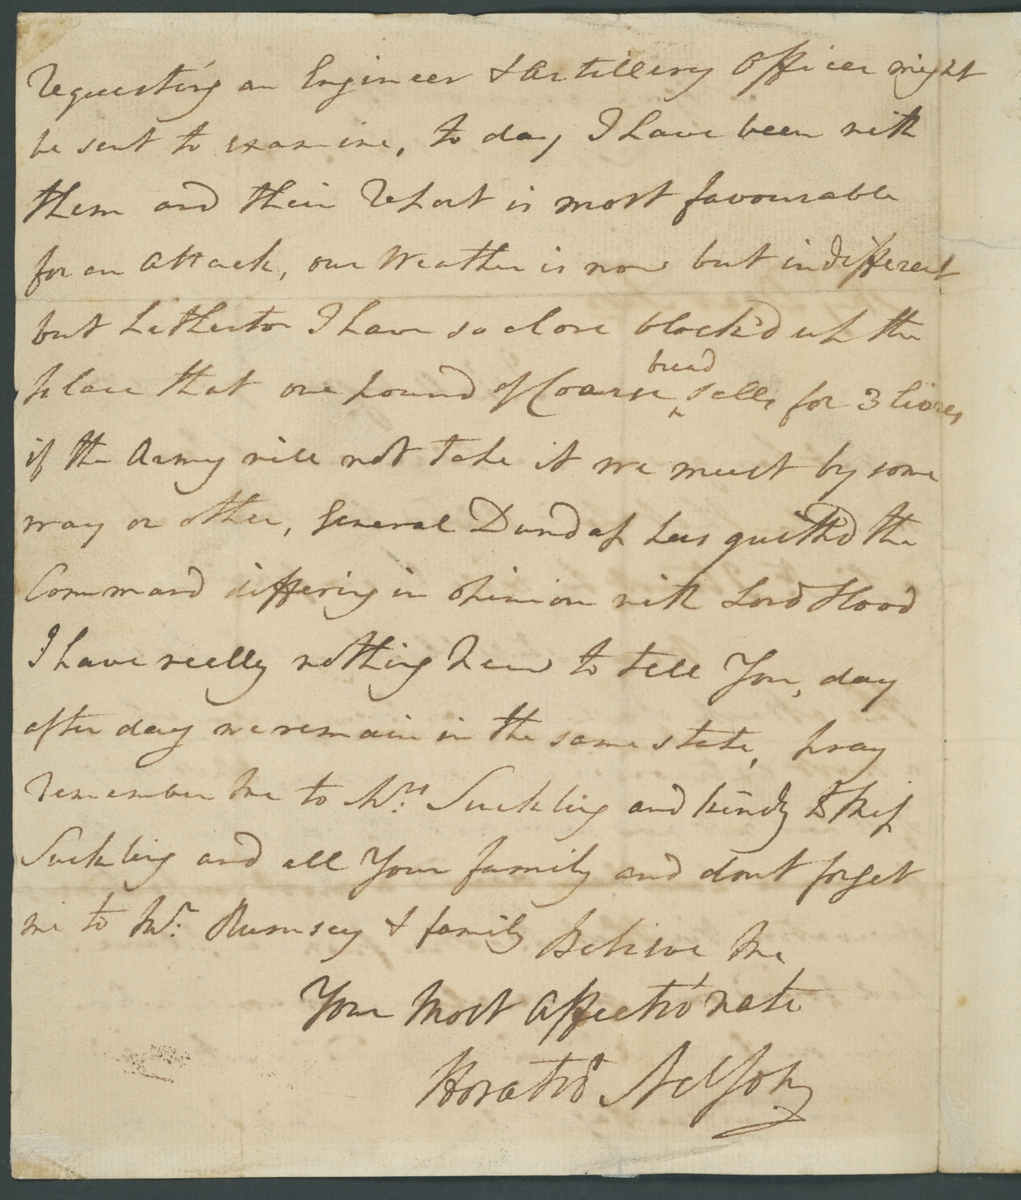 requesting an Engineer & Artillery Officer might
be sent to examine, to day I have been with
them and their report is most favourable
for an attack, our Weather is now but indifferent
but hitherto I have so close block'd up the
place that one pound of Coarse bread sells for 3 livres
if the Army will not take it we must by some
way or other, General Dundass has quitted the
Command differing in opinion with Lord Hood
I have really nothing new to tell You, day
after day we remain in the same state, pray
remember me to Mrs. Suckling and kindly to Miss
Suckling and all Your family and dont forget
me to Mr. Rumsey & family Believe Me
Your Most Affectionate
Horatio Nelson